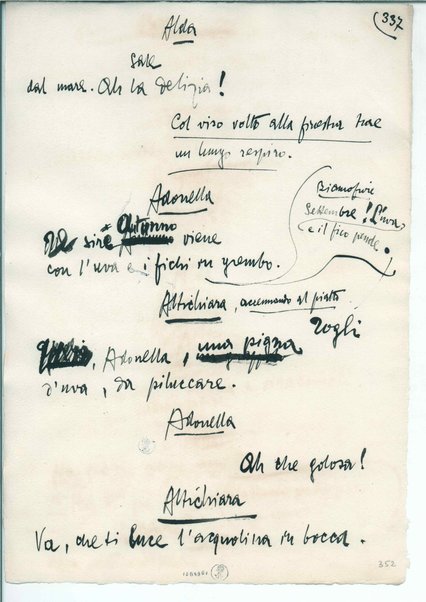 337
Alda
Sale
dal mare. Oh la delizia!
Col viso volto alla finestra trae
un lungo respiro.
Adonella
sire Autunno viene
con l'uva e i fichi in grembo.
Biancofiore
Settembre! L'uva
e il fico pende.
Altichiara, accennando al piatto
Togli
, Adonella, una pigna
d'uva, da piluccare.
Adonella
Oh che golosa!
Altichiara
Va, che ti luce l'acquolina in bocca.
352